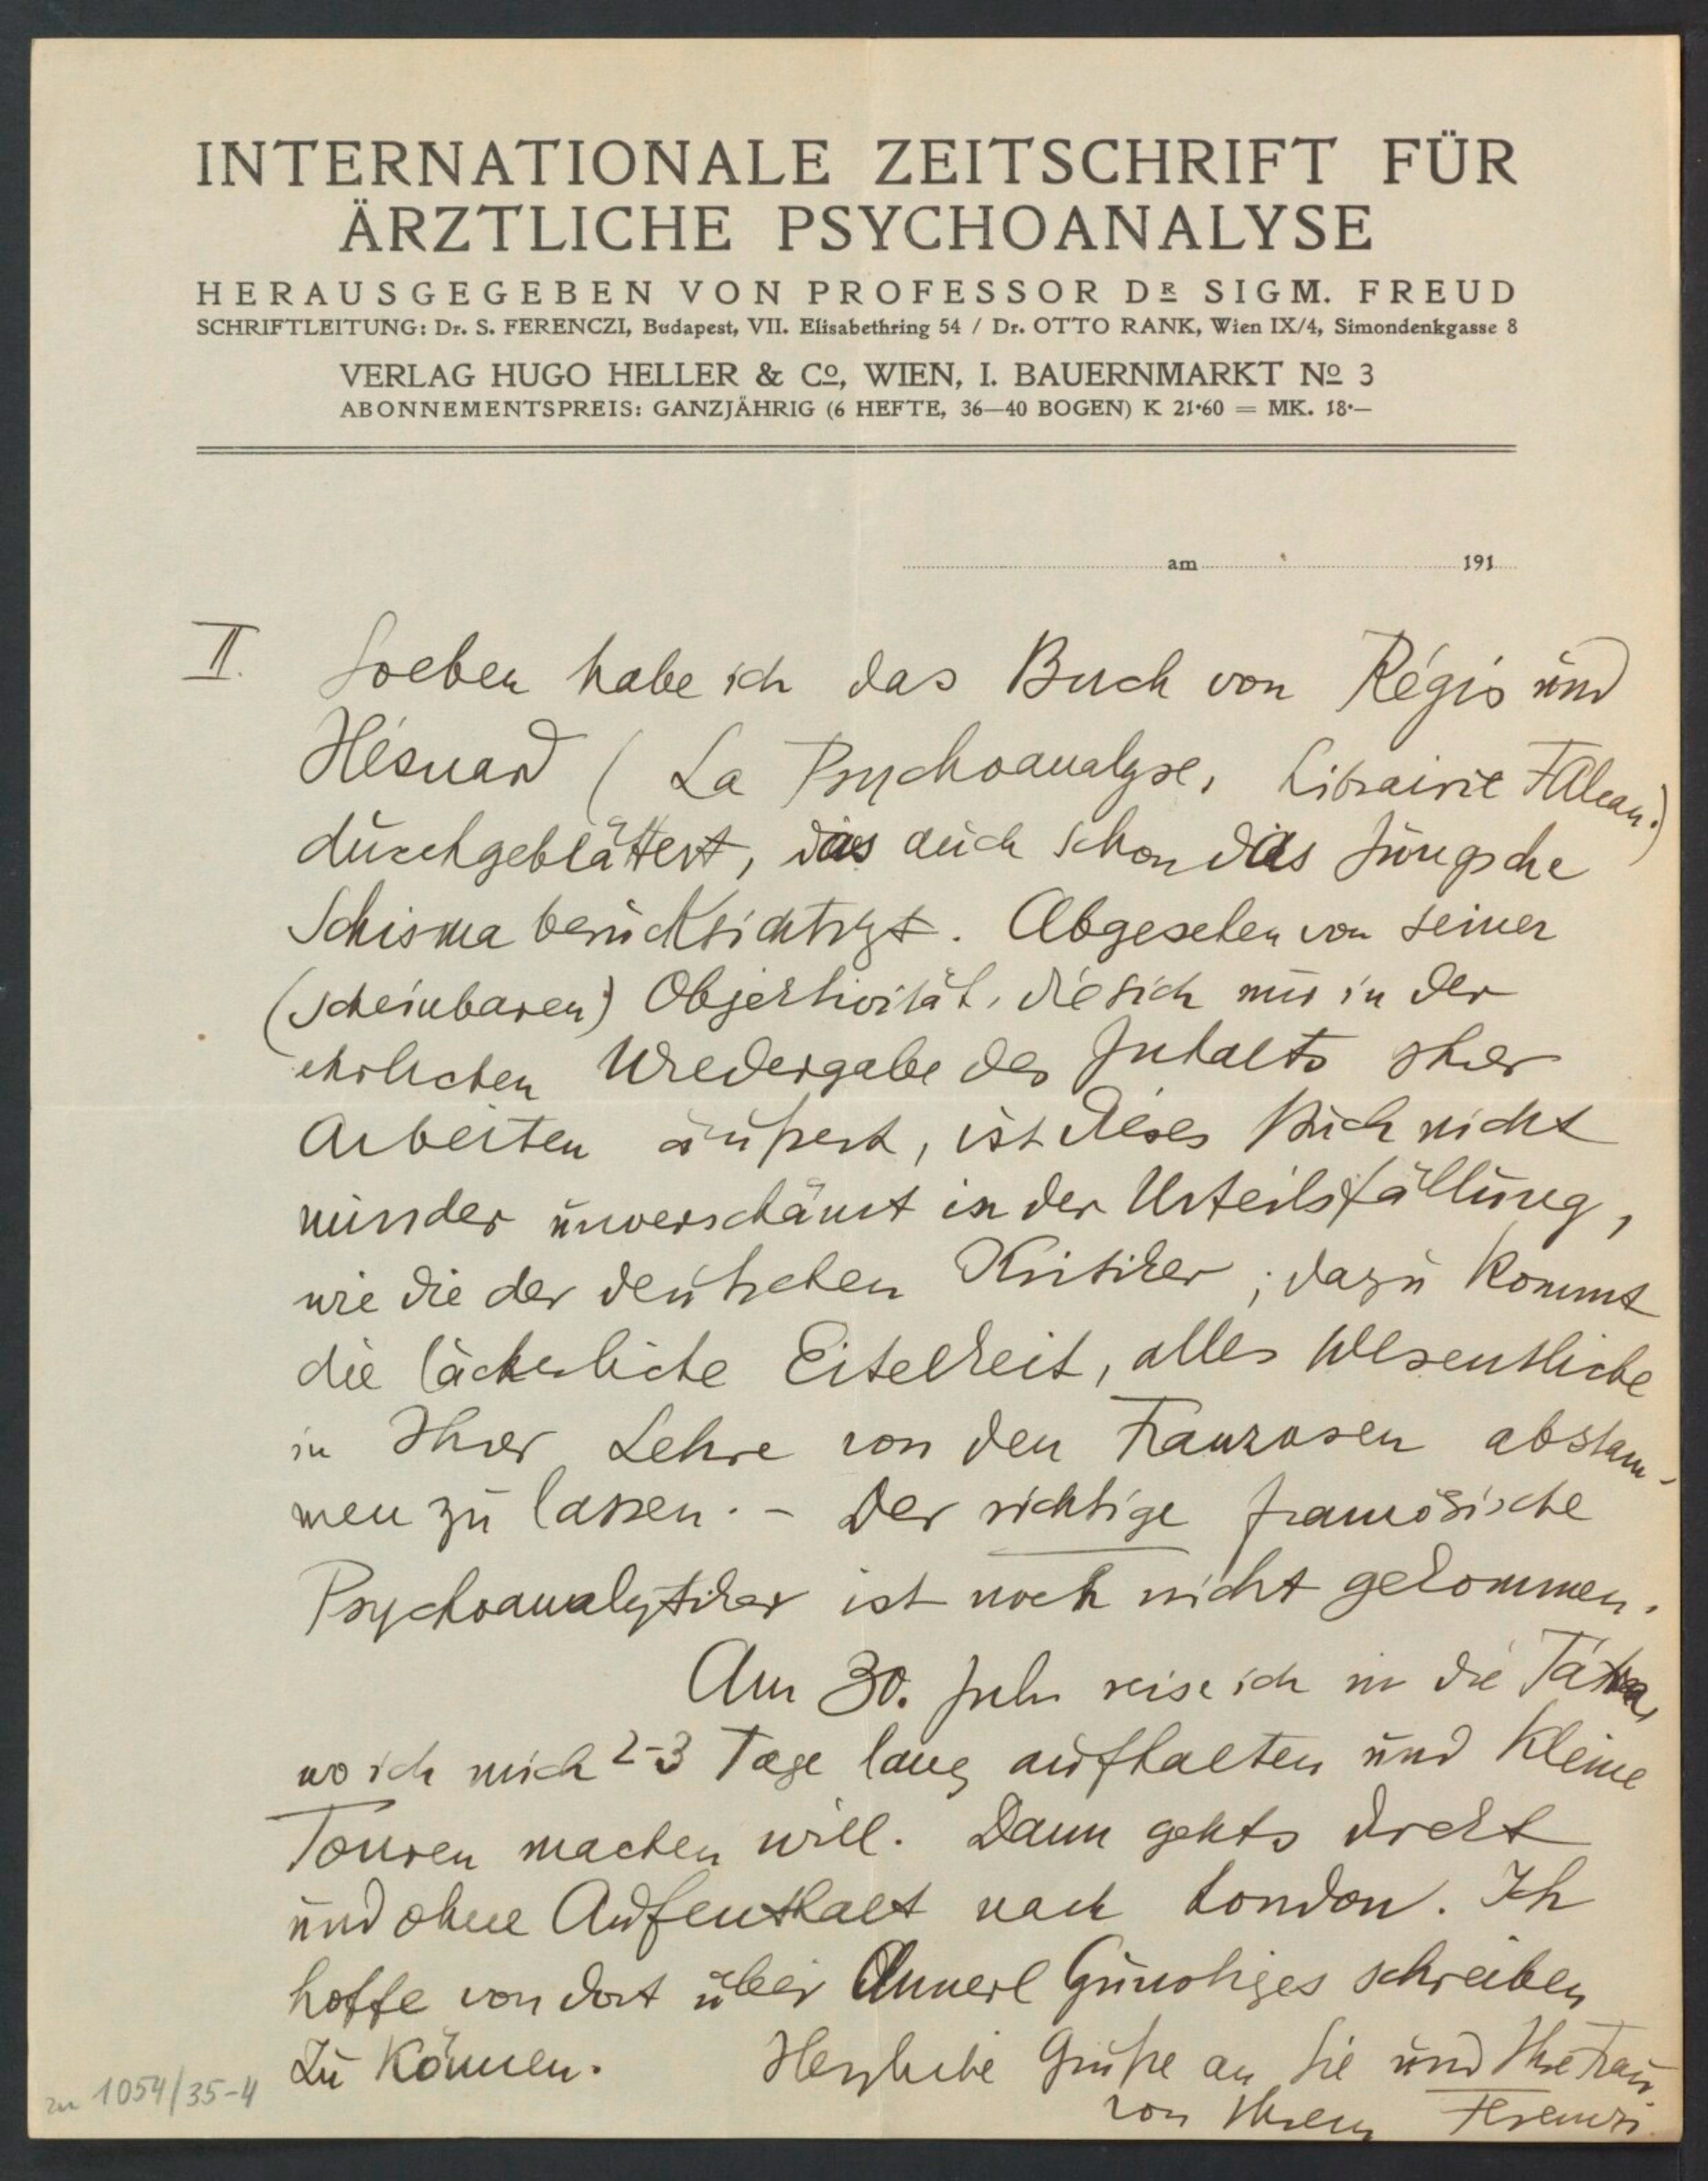 INTERNATIONALE ZEITSCHRIFT FÜR
ÄRZTLICHE PSYCHOANALYSE
HERAUSGEGEBEN VON PROFESSOR DR SIGM. FREUD
SCHRIFTLEITUNG: Dr. S. FERENCZI, Budapest, VII. Elisabethring 54 / Dr. OTTO RANK, Wien IX/4, Simondenkgasse 8
VERLAG HUGO HELLER & Co, WIEN, I. BAUERNMARKT No 3
ABONNEMENTSPREIS: GANZJÄHRIG (6 HEFTE, 36—40 BOGEN) K 21·60 = MK. 18·—
am 191
II. Soeben habe ich das Buch von Régis und
Hésnard (La Psychoanalyse, Librairie F Alcan.)
durchgeblättert, das auch schon das Jungsche
Schisma berücksichtigt. Abgesehen von seiner
(scheinbaren) Objektivität, die sich nur in der
ehrlichen Wiedergabe des Inhalts Ihrer
Arbeiten äußert, ist dieses Buch nicht
minder unverschämt in der Urteilsfällung,
wie die der deutschen Kritiker; dazu kommt
die lächerliche Eitelkeit, alles Wesentliche
in Ihrer Lehre von den Franzosen abstam-
men zu lassen. - Der richtige französische
Psychoanalytiker ist noch nicht gekommen.
Am 30. Juli reise ich in die Tátra,
wo ich mich 2-3 Tage lang aufhalten und kleine
Touren machen will. Dann gehts direkt
und ohne Aufenthalt nach London. Ich
hoffe von dort über Annerl Günstiges schreiben
zu können. Herzliche Grüße an Sie und Ihre Frau
von Ihrem Ferenczi
zu 1054/35-4